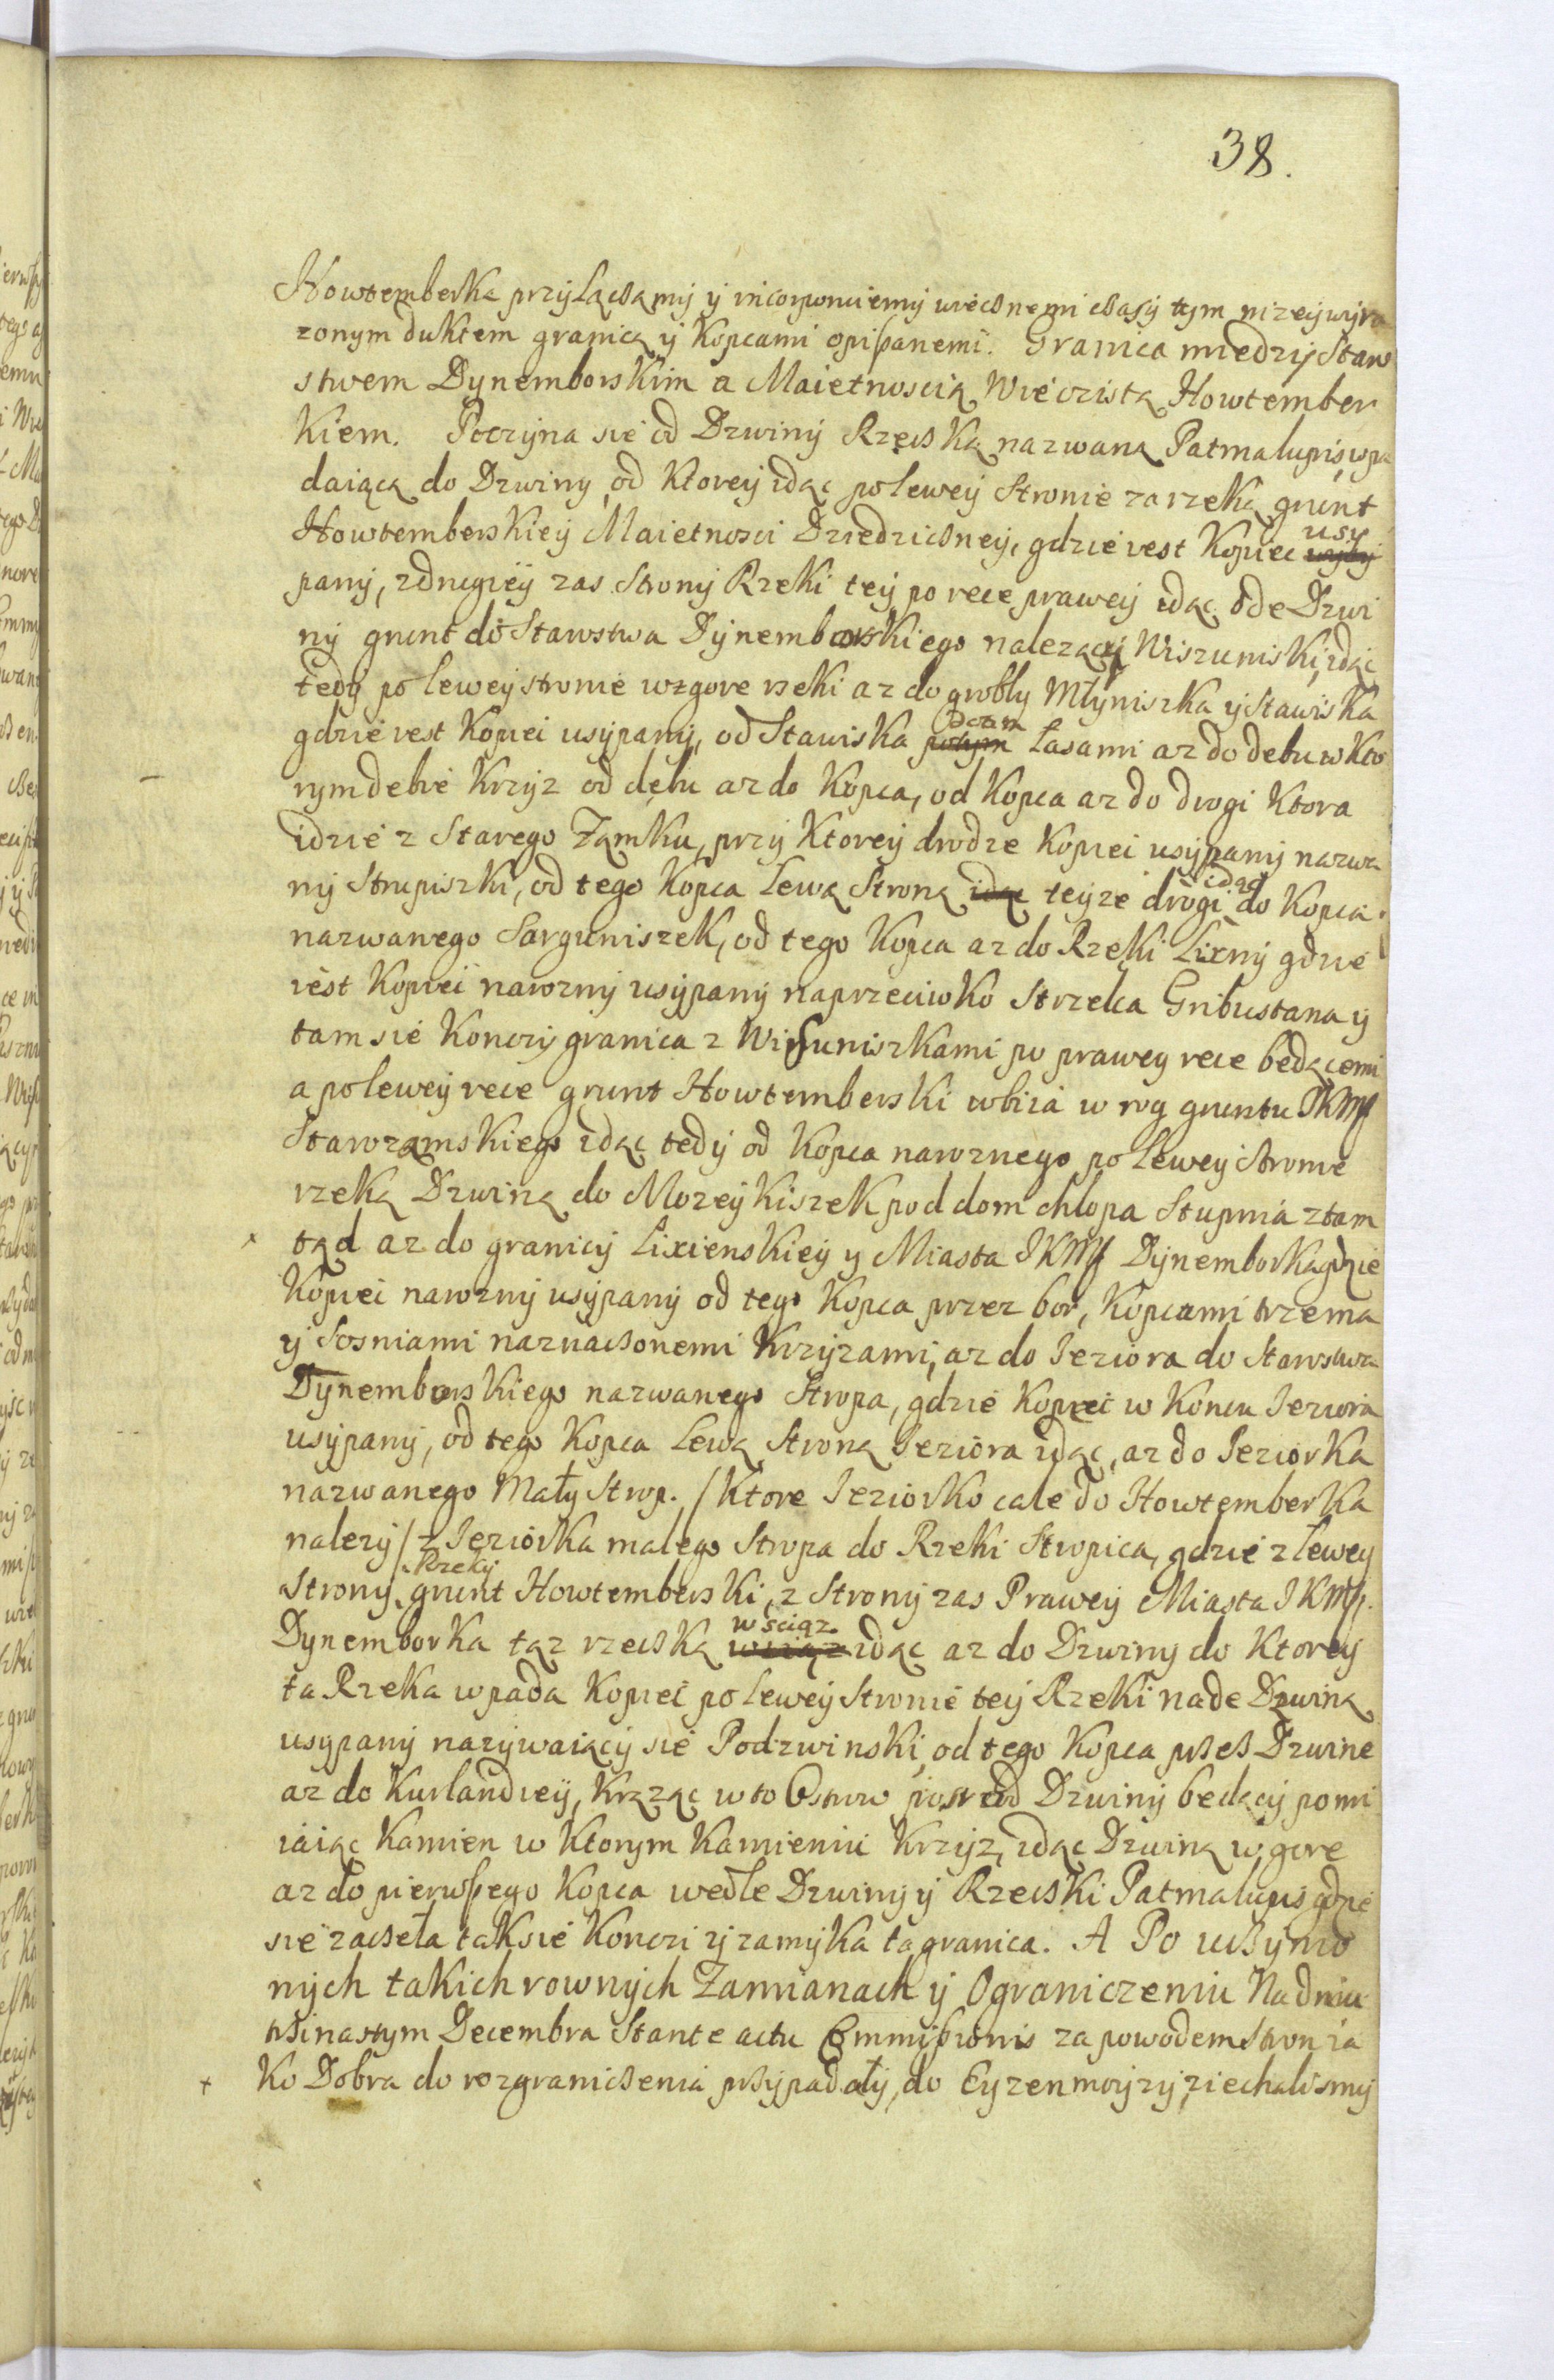 38.
Howtemberka przyłączamy y incorporuiemy wiecznemi czasy tym nizey wyra
zonym duktem granicą y Kopcami opisanemi. Granica miedzy Staro
stwem Dynemborskim a Maietnoscią Wieczistą Howtember
kiem. Poczyna sie od Dzwiny Rzeczką nazwaną Patmalupis, wpa
daiącą do Dzwiny, od Ktorey idąc po lewey Stronie za rzeką grunt
Howtemberskiey Maietnosci Dziedziczney, gdzie iest Kopiec usy
pany, z drugiey zas Strony Rzeki tey po rece prawey idąc ode Dzwi
ny grunt do Starostwa Dynemborskiego nalezący Wiszuniski, idąc
tedy po lewey stronie wzgore rzeki az do grobly Młyniszka y Stawiska
gdzie iest Kopiec usypany, od Stawiska potym Lasami az do debu w Kto
rym debie Krzyz od dębu az do Kopca, od Kopca az do drogi Ktora
idzie z Starego Zamku, przy Ktorey drodze Kopiec usypany nazwa
ny Strupiszki, od tego Kopca Lewą Stroną idąc teyze drogi idąc do Kopca
nazwanego Sarguniszek, od tego Kopca az do Rzeki Lixny gdzie
iest Kopiec narozny usypany naprzeciwko Strzelca Gribustana y
tam sie Konczy granica z Wisuniszkami po prawey rece będącemi
a po lewey rece grunt Howtemberski wbiia w rog gruntu JKMsci
Starozamskiego idąc tedy od Kopca naroznego po Lewey Stronie
rzeką Dzwiną do Mozeykiszek pod dom chlopa Stupnia ztam
tąd az do granicy Lixienskiey y Miasta JKMsci Dynemborka gdzie
Kopiec narozny usypany od tego Kopca przez bor, Kopcami trzema
y Sosniami naznaczonemi Krzyzami, az do Ieziora do Starostwa
Dynemborskiego nazwanego Stropa, gdzie Kopiec w Koncu Ieziora
usypany, od tego Kopca Lewą Stroną Ieziora idąc, az do Ieziorka
nazwanego Mały Strop. / Ktore Ieziorko cale do Howtemberka
nalezy / z Ieziorka malego Stropa do Rzeki Stropica, gdzie z lewey
Strony Rzeky grunt Howtemberski, z Strony zas Prawey Miasta JKMsci
Dynemborka taz rzeczką wsciąz idąc az do Dzwiny do Ktorey
ta Rzeka wpada Kopiec po lewey Stronie tey Rzeki nade Dzwiną
usypany nazywaiący sie Podzwinski, od tego Kopca przez Dzwine
az do Kurlandiey, Krząząc w to Ostrow posrod Dzwiny bedący pomi
iaiąc Kamien w Ktorym Kamieniu Krzyz, idąc Dzwiną w gore
az do pierwszego Kopca wedle Dzwiny y Rzeczki Patmalupis gdzie
sie zaczeła tak sie Konczi y zamyka ta granica. A Po uczynio
nych takich rownych Zamianach y Ograniczeniu Na dniu
trzinastym Decembra Stante actu Commissionis za powodem Stron ia
Ko Dobra do rozgraniczenia przypadały, do Eyzenmoyzy ziechalismy